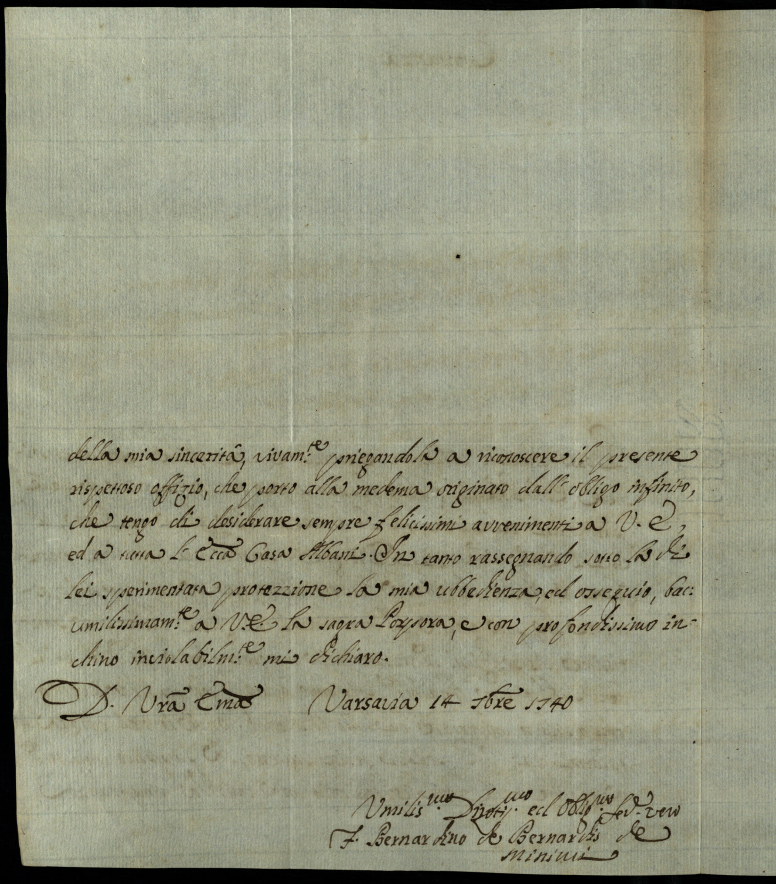 della mia sincerità, vivam.te priegandola a riconoscere il presente
rispettoso offizio, che porto alla medema originato dall' obligo infinito,
che tengo di desiderare sempre felicissimi avvenimenti a V. E,
ed a tutta l' Ecca Casa Albani. In tanto rassegnando sotto la di
lei sperimentata protezzione la mia ubbedienza, ed ossequio, bac:
umilissimam.te a V. E. la sagra Porpora, e con profondissimo in-
chino inviolabilm.te mi dichiaro.
D. Vrã Emã Varsavia 14 7bre 1740
Umilis.mo Divotis.mo ed Obblig.mo vero
F. Bernardino de Bernardis de
Minimi